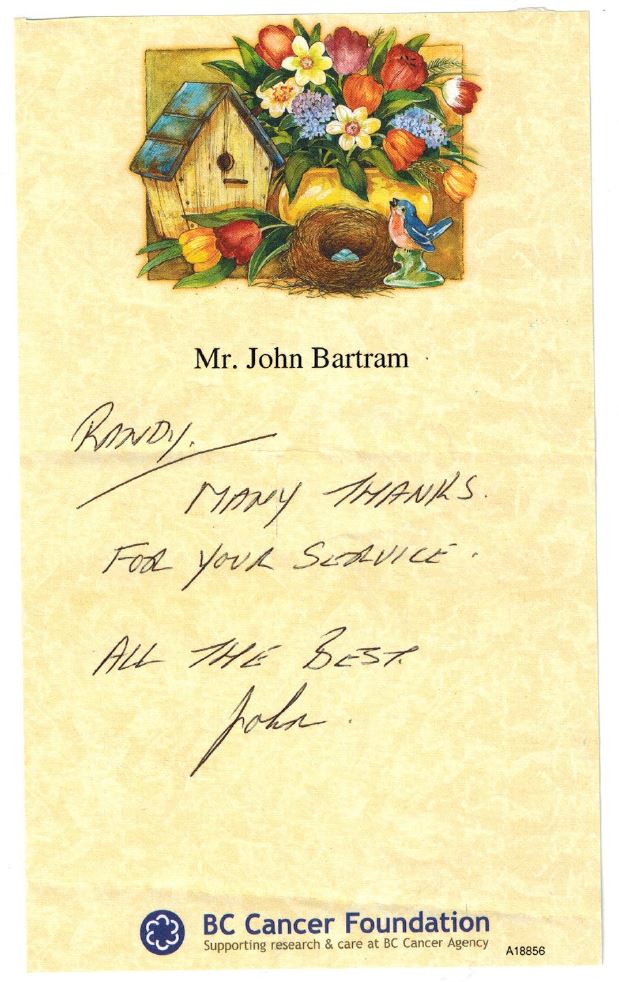 Mr. John Bartram
RANDY.
MANY THANKS.
FOR YOUR SERVICE.
ALL THE BEST.
John.
BC Cancer Foundation
Supporting research & care at BC Cancer Agency
A18856